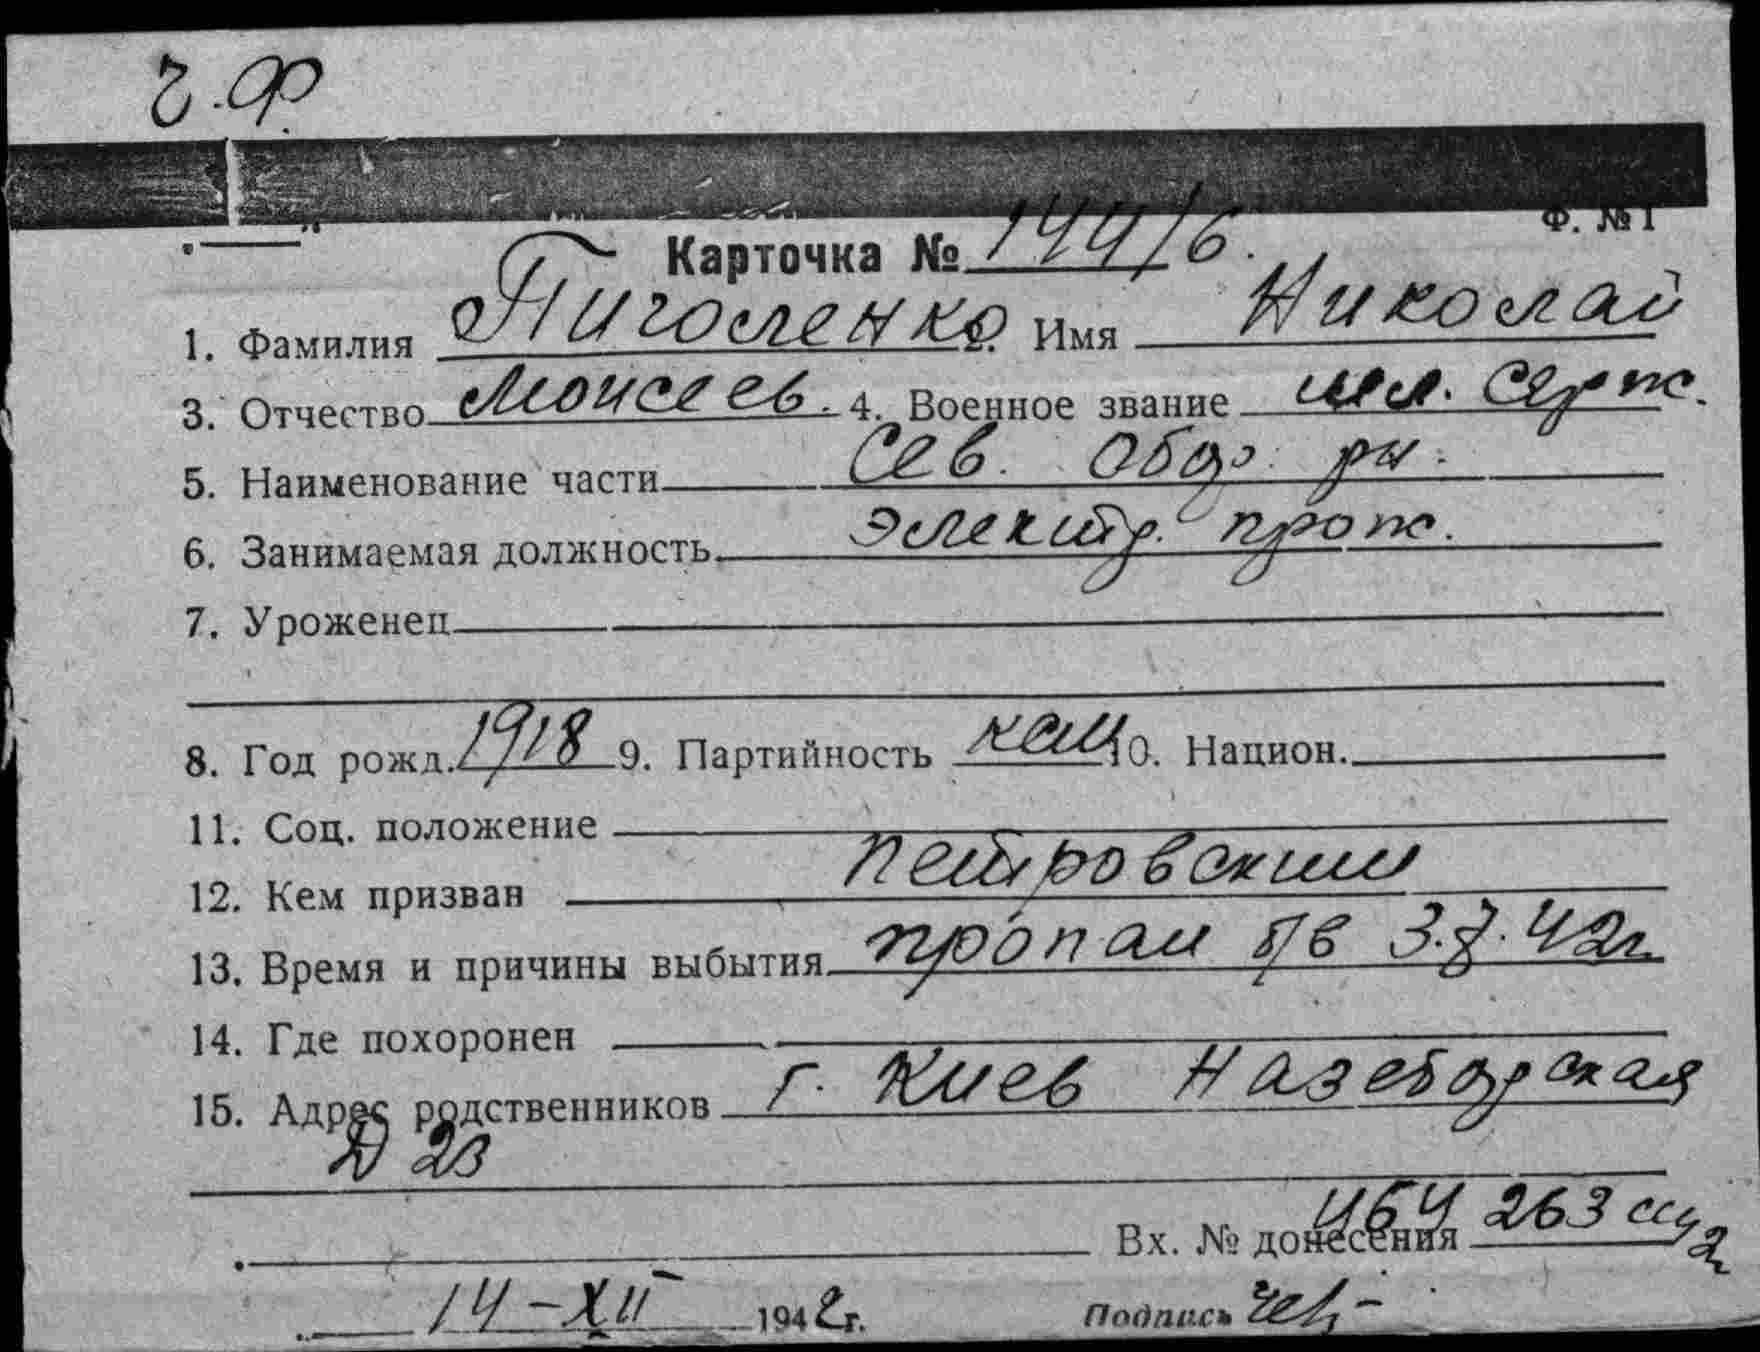 Ч.Ф
Ф. №1
Карточка № 144/6.
1. Фамилия Пиголенко 2. Имя Николай
3. Отчество Моисеев. 4. Военное звание мл. серж.
5. Наименование части Сев. обор. р-н.
6. Занимаемая должность электр. прож.
7. Уроженец
8. Год рожд. 1918 9. Партийность 10. Национ.
11. Соц. положение
12. Кем призван Петровским
13. Время и причины выбытия пропал б/в 3.7.42г
14. Где похоронен
15. Адрес родственников г. Киев
Д 23
Вх. № донесения 263
14-XII 1942г.
Подпись